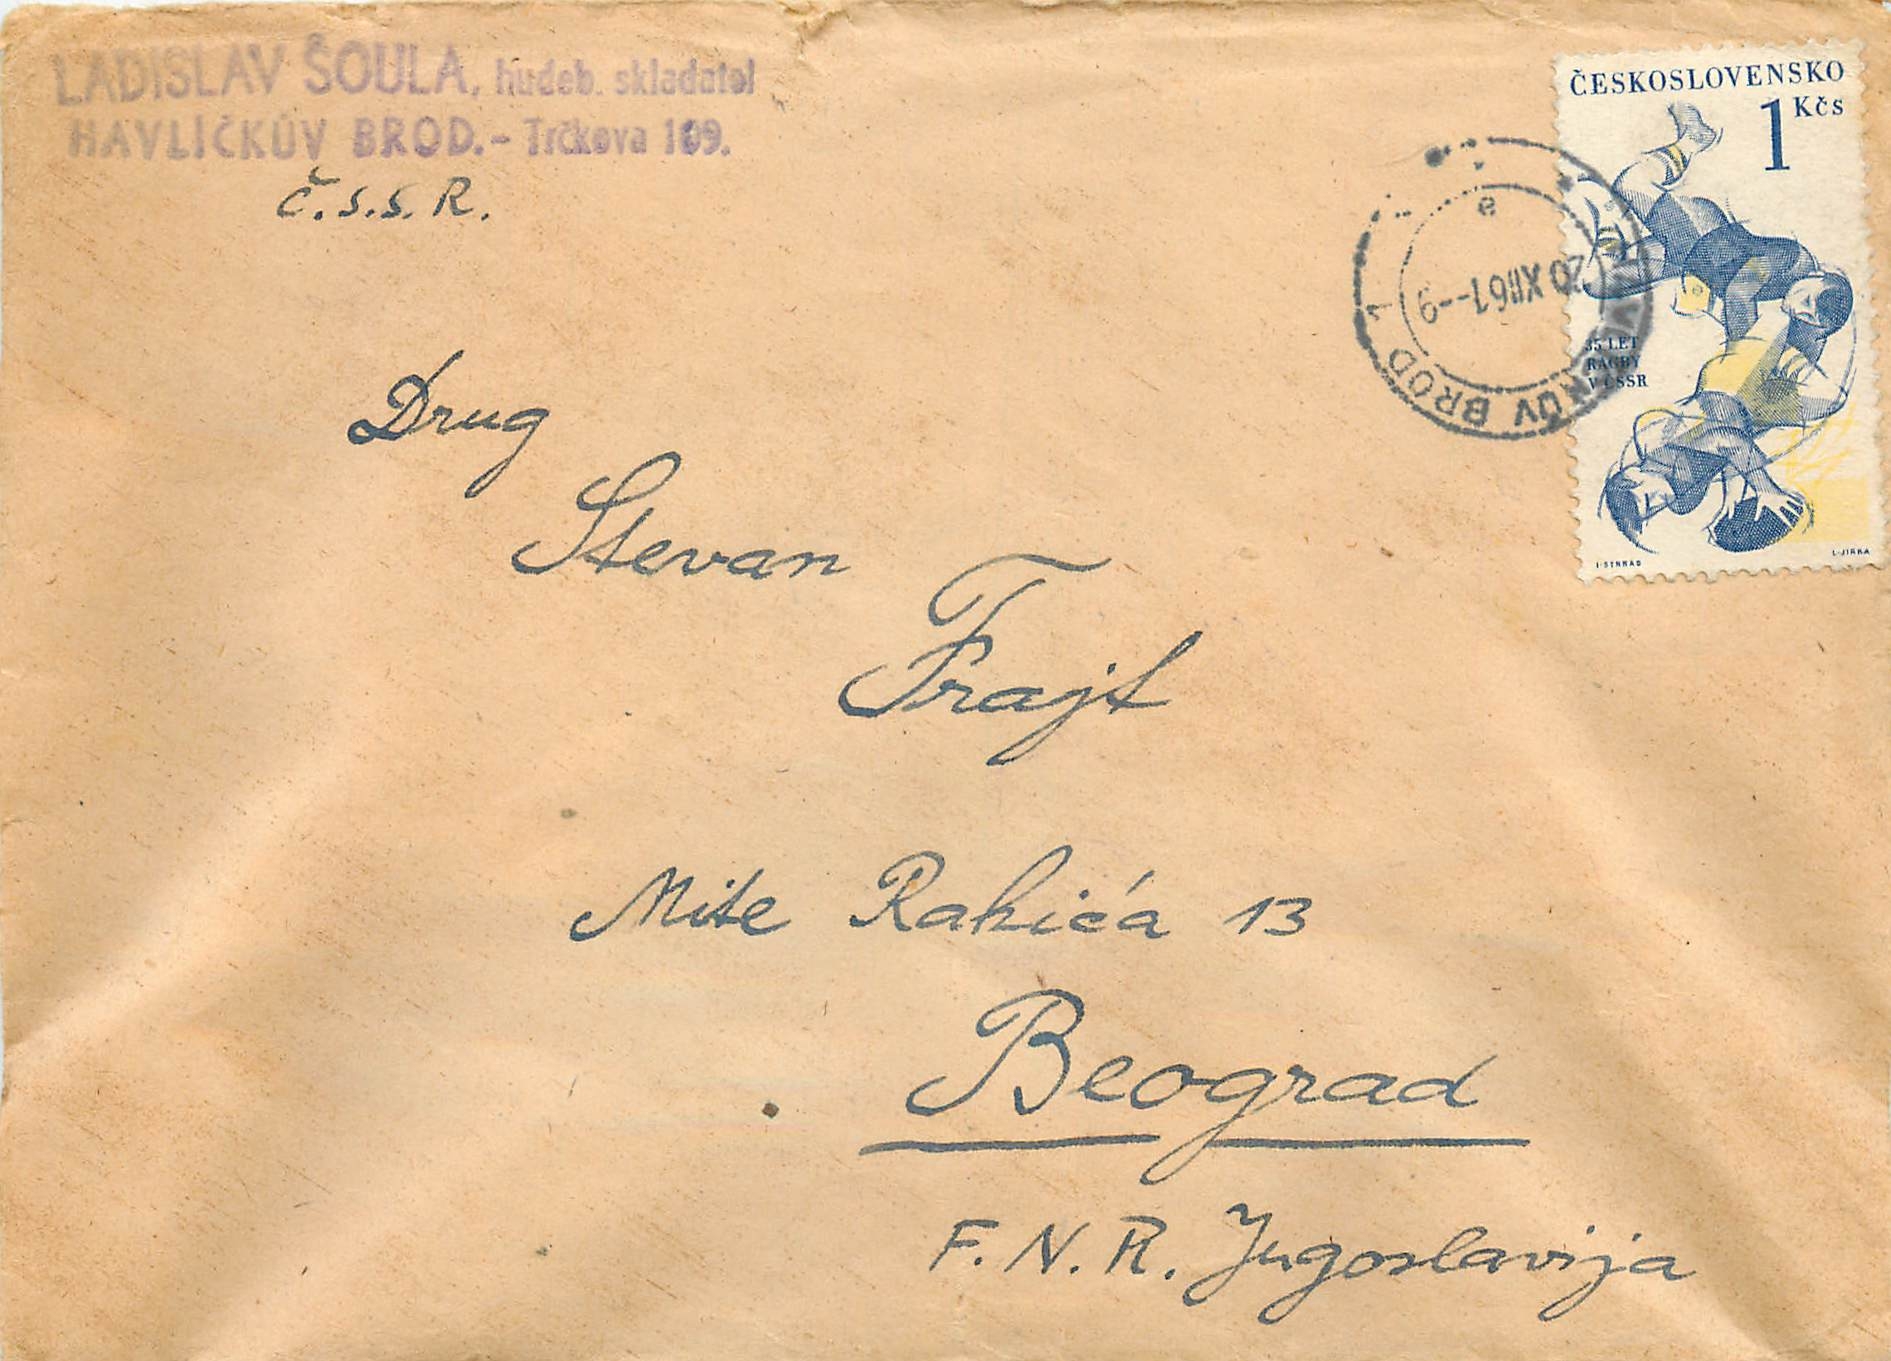 LADISLAV ŠOULA, hudeb. skladatel
HAVLÍČKŮV BROD. - Trčkova 109.
Č.S.S.R.
ČESKOSLOVENSKO
1 Kčs
35 LET
RAGBY
V ČSSR
L·JIRKA
20 XII 61 --9
e
BROD 1
Drug
Stevan
Frajt
Mite Rakića 13
Beograd
F.N.R. Jugoslavija